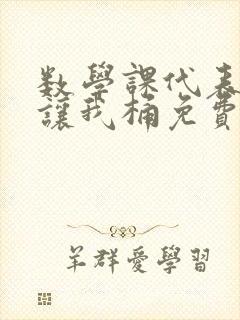 數學課代表
讓我桶免費
羊群愛學習